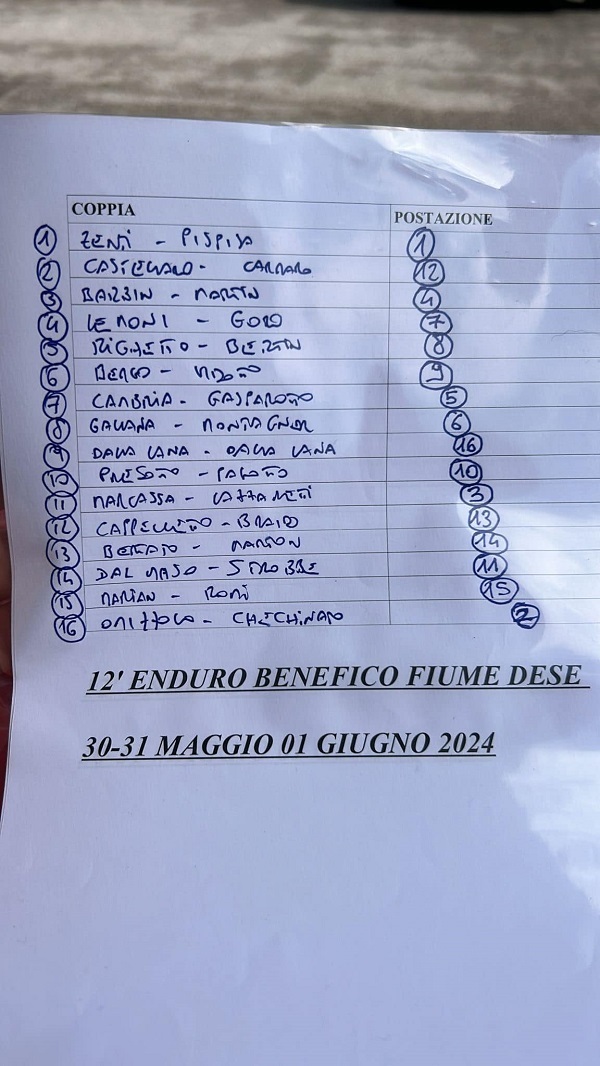 COPPIA POSTAZIONE
1 ZENTI - PISPISA 1
2 CASTEGNARO - CARRARO 12
3 BARBIN - MARTIN 4
4 LEMONI - GOLO 7
5 RIGHETTO - BERTIN 8
6 BERGO - 9
7 CAMBRIA - GASPAROTTO 5
8 GALVANA - MONTAGNER 6
9 DALLA LANA - DALLA LANA 16
10 PRESOTTO - 10
11 MARCASSA - LAZZARETTI 3
12 CAPPELLETTO - BRAIDO 13
13 - MARSON 14
14 DAL MASO - STROBBE 11
15 MARIAN - ROMÌ 15
16 ORIZZOLO - CHECHINATO 2
12' ENDURO BENEFICO FIUME DESE
30-31 MAGGIO 01 GIUGNO 2024